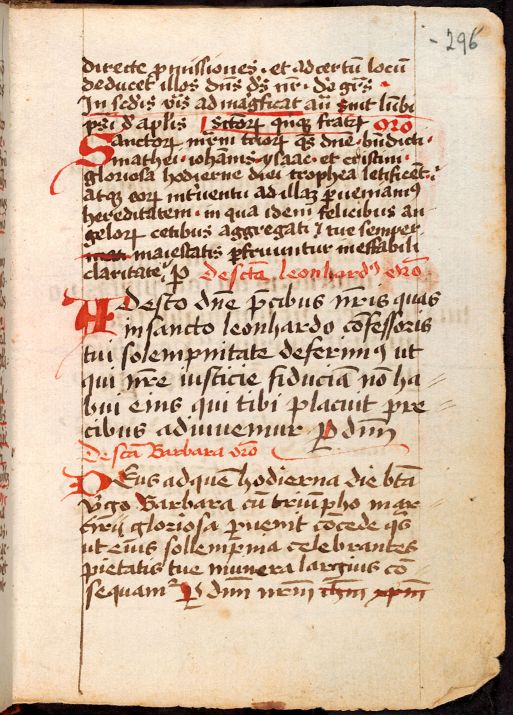 - 296
directe permissiones. et ad certum locum
deducet illos dns ds nr. de gnis.
In scdis vis ad magficat an Sint lumbi
psi de aplis Sctorum quinque fratrum oro
Sanctorum mrm tuorum qs dne bndicti
mathei. iohanis. ysaac. et cristini.
gloriosa hodierne diei trophea letificet.
atque eorum interuentu ad illam perueniamus
hereditatem. in qua idem felicibus an
gelorum cetibus aggregati in tue semper
maiestatis perfruuntur ineffabili
claritate. P De scto leonhardo oro
Adesto dne precibus nris quas
in sancto leonhardo confessoris
tui solempnitate deferimus ut
qui nre iusticie fiduciam non ha
bui eius qui tibi placuit pre
cibus adiuuemur P dnm
De scta Barbara oro
Deus ad quem hodierna die bta
virgo Barbara cum triumpho mar
tirij gloriosa peruenit concede qs
ut eius sollempnia celebrantes
pietatis tue munera largius con
sequamur P dnm nrm ihm xpm